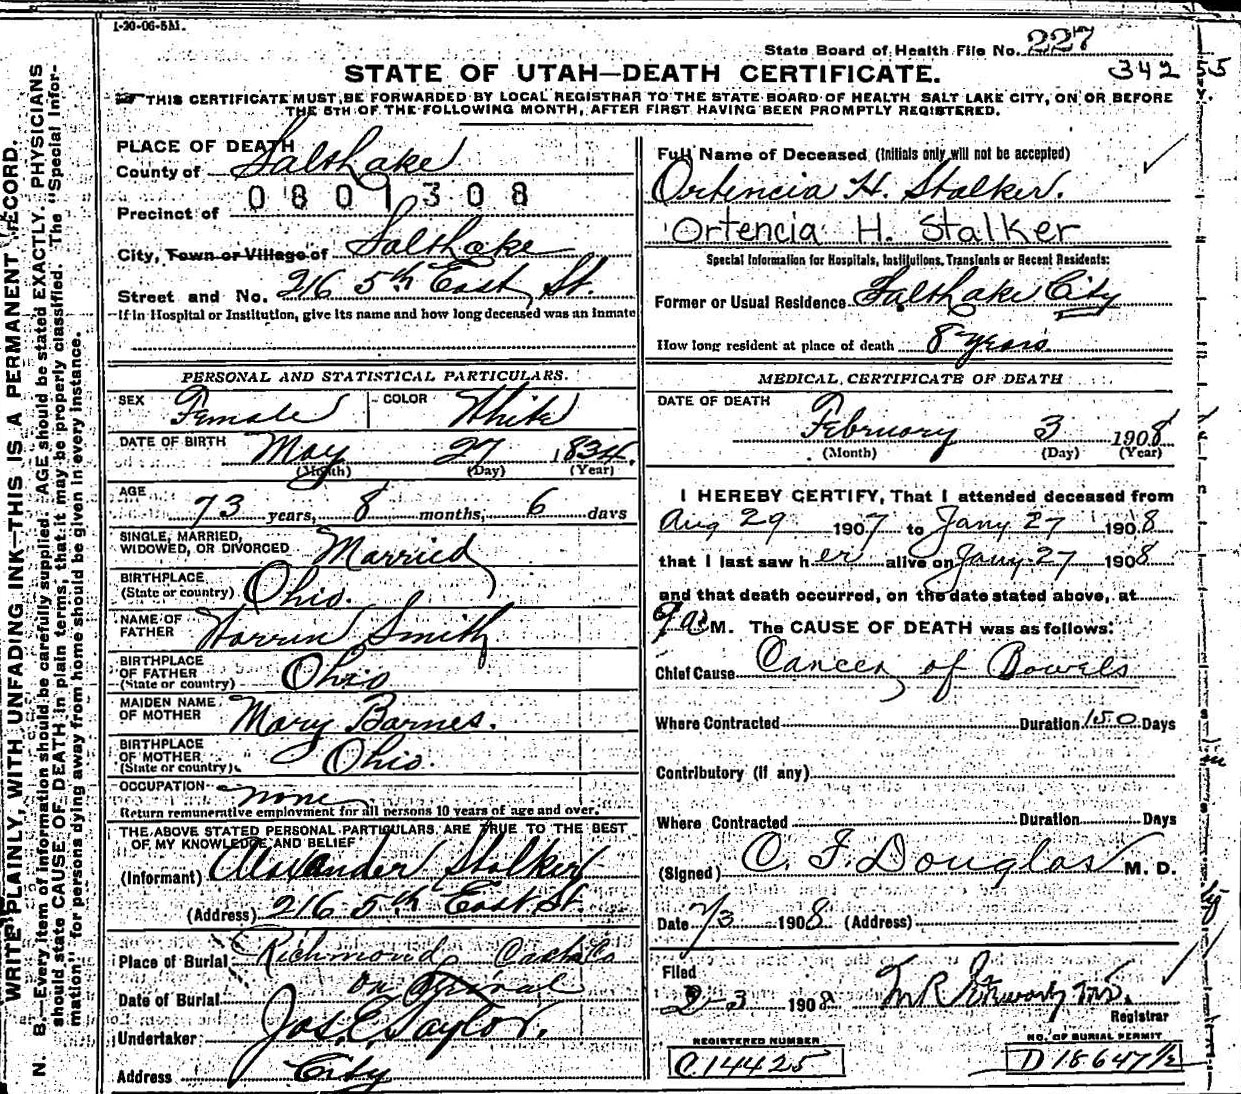 1-20-06-5M.
State Board of Health File No. 227
STATE OF UTAH—DEATH CERTIFICATE.
34255
THIS CERTIFICATE MUST BE FORWARDED BY LOCAL REGISTRAR TO THE STATE BOARD OF HEALTH SALT LAKE CITY, ON OR BEFORE
THE 5TH OF THE FOLLOWING MONTH, AFTER FIRST HAVING BEEN PROMPTLY REGISTERED.
WRITE PLAINLY, WITH UNFADING INK—THIS IS A PERMANENT RECORD.
N. B.—Every item of information should be carefully supplied. AGE should be stated EXACTLY. PHYSICIANS
should state CAUSE OF DEATH in plain terms, that it may be properly classified. The "Special Infor-
mation" for persons dying away from home should be given in every instance.
PLACE OF DEATH
County of Salt Lake
0801308
Precinct of
City, Town or Village of Salt Lake
Street and No. 216 5th East St.
If in Hospital or Institution, give its name and how long deceased was an inmate
PERSONAL AND STATISTICAL PARTICULARS.
SEX Female COLOR White
DATE OF BIRTH May 27 1834.
(Month) (Day) (Year)
AGE 73 years, 8 months, 6 days
SINGLE, MARRIED,
WIDOWED, OR DIVORCED Married
BIRTHPLACE
(State or country) Ohio.
NAME OF
FATHER Warren Smith
BIRTHPLACE
OF FATHER
(State or country) Ohio
MAIDEN NAME
OF MOTHER Mary Barnes.
BIRTHPLACE
OF MOTHER
(State or country) Ohio.
OCCUPATION none
Return remunerative employment for all persons 10 years of age and over.
THE ABOVE STATED PERSONAL PARTICULARS ARE TRUE TO THE BEST
OF MY KNOWLEDGE AND BELIEF
(Informant) Alexander Stalker
(Address) 216 5th East St.
Place of Burial Richmond Cache Co
Date of Burial on Arrival
Undertaker Jos. E. Taylor.
Address City
Full Name of Deceased (Initials only will not be accepted)
Ortencia H. Stalker.
Ortencia H. Stalker
Special Information for Hospitals, Institutions, Transients or Recent Residents:
Former or Usual Residence Salt Lake City
How long resident at place of death 8 years
MEDICAL CERTIFICATE OF DEATH
DATE OF DEATH
February 3 1908
(Month) (Day) (Year)
I HEREBY CERTIFY, That I attended deceased from
Aug 29 1907 to Jany 27 1908
that I last saw her alive on Jany 27 1908
and that death occurred, on the date stated above, at
9 a M. The CAUSE OF DEATH was as follows:
Chief Cause Cancer of Bowels
Where Contracted Duration 150 Days
Contributory (if any)
Where Contracted Duration Days
(Signed) C. F. Douglas M. D.
Date 2/3 1908 (Address)
Filed
2-3 1908
Registrar
REGISTERED NUMBER
C.14425
NO. OF BURIAL PERMIT
D 18647½